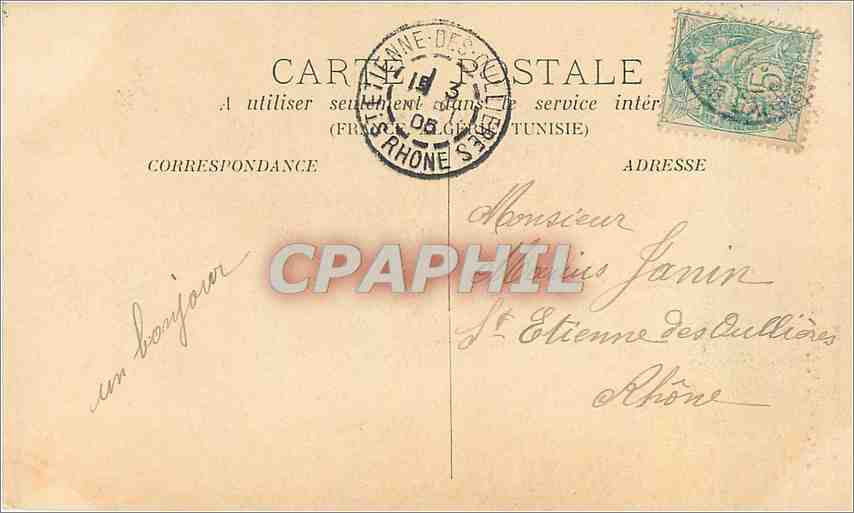 CARTE POSTALE
A utiliser seulement dans le service intér
(FRANCE, ALGÉRIE, TUNISIE)
CORRESPONDANCE
ADRESSE
ST ETIENNE-DES-OULLIERES
15 3
05
RHONE
5
un bonjour
Monsieur
Marius Janin
St Etienne des Oullières
Rhône
CPAPHIL